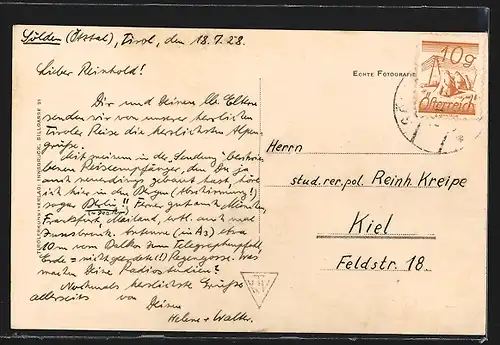 Sölden (Ötztal), Tirol, den 18.7.28.
Lieber Reinhold!
Dir und Deinen lb. Eltern
senden wir von unserer herrlichen
Tiroler Reise die herzlichsten Alpen-
grüße.
Mit meinem in der Sendung beschrie-
benen Reiseempfänger, den Du ja
auch neuerdings gebaut hast, höre
ich hier in den Bergen (Abstimmung!)
sogar Berlin!! Ferner gut auch München,
Frankfurt, Mailand, erstl. auch mal
Innsbruck. Antenne (in A3) etwa
10 m vom Balkon zum Telegraphenpfahl,
Erde = nicht geerdet (!) Regengosse. Was
machen Deine Radiostudien?
Nochmals herzlichste Grüße
allerseits von
Deinen
Helene + Walter.
TIROLER KUNSTVERLAG: INNSBRUCK, SILLGASSE 21
ECHTE FOTOGRAFIE
10 g
Österreich
Herrn
stud. rer. pol. Reinh. Kreipe
Kiel
Feldstr. 18.